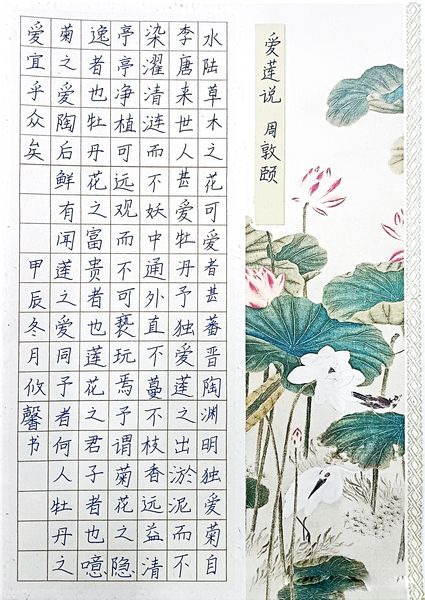 爱莲说 周敦颐
水陆草木之花可爱者甚蕃晋陶渊明独爱菊自
李唐来世人甚爱牡丹予独爱莲之出淤泥而不
染濯清涟而不妖中通外直不蔓不枝香远益清
亭亭净植可远观而不可亵玩焉予谓菊花之隐
逸者也牡丹花之富贵者也莲花之君子者也噫
菊之爱陶后鲜有闻莲之爱同予者何人牡丹之
爱宜乎众矣 甲辰冬月攸馨书